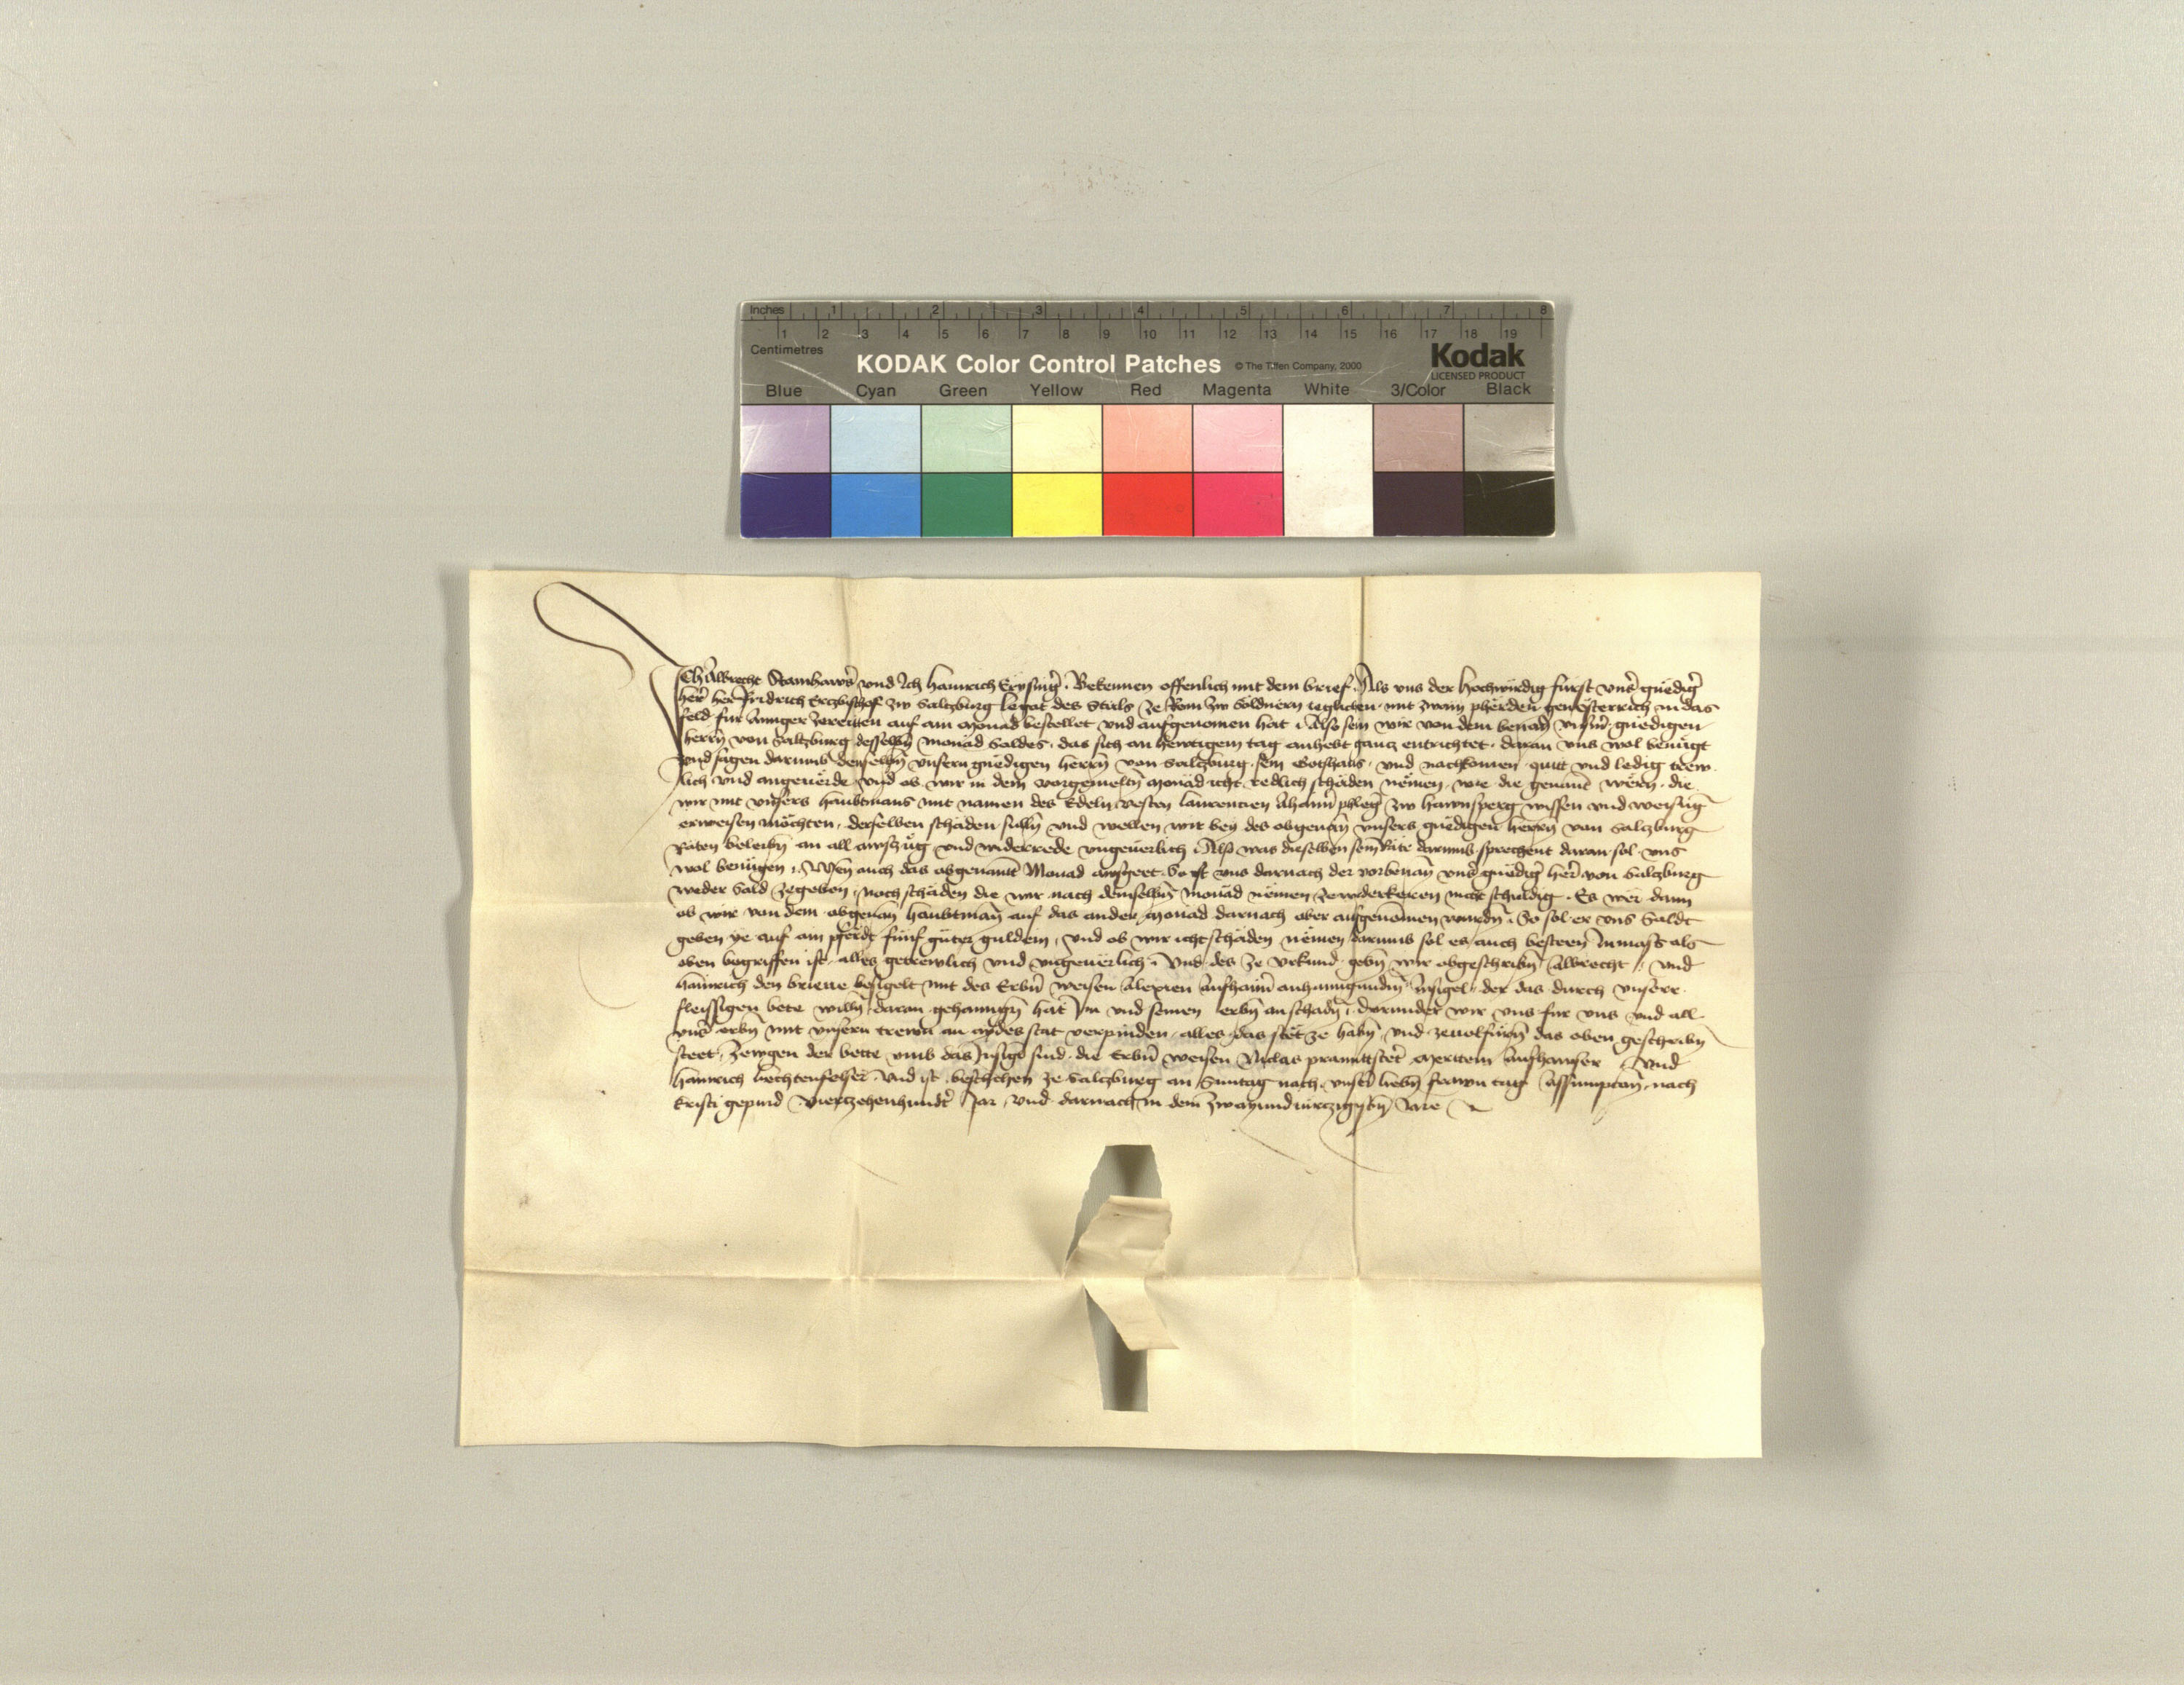 Inches 1 2 3 4 5 6 7 8
1 2 3 4 5 6 7 8 9 10 11 12 13 14 15 16 17 18 19
Centimetres
KODAK Color Control Patches © The Tiffen Company, 2000 Kodak
LICENSED PRODUCT
Blue Cyan Green Yellow Red Magenta White 3/Color Black
Ich Albrecht und Ich Hainrich Bekennen offenlich mit dem brief. Als vns der Hochwirdig fürst vnser gnedig
her her Fridrich Ertzbischof zw Saltzburg Legat des Stuls ze Rom zw Söldnern ieglichen mit zwain pherden gen Österrich in das
feld auf ain Monad bestellet vnd aufgenomen hat. Also sein wir von dem benan vnserm gnedigen
herrn von Saltzburg desselbn Monad Soldes, das sich an hewtigem tag anhebt gancz entrichtet, daran vns wol benügt
vnd sagen darumb denselbn vnsern gnedigen herrn von Salczburg, sein Gotshaus, vnd nachkomen quitt vnd ledig trew
lich vnd angeuerde, vnd ob wir in dem vorgemeltn Monad icht redlich schäden nëmen, wie die genant wërn, die
wir mit vnsers haubtmans mit namen des Edeln vesten Laurencien phleger zw wissen vnd weisung
erweisen möchten, derselben schäden sulln vnd wellen wir bey des obgenan vnsers gnedigen herrn von Salczburg
Räten beleibn an all awszüg vnd widerrede vngeuerlich. Also was dieselben sein Räte darumb sprechent daran sol vns
wol benügen. Wen auch das obgenant Monad awsgeet, So ist vns darnach der vorbenan vnser gnedig her von Salczburg
weder Sold zegeben, noch schäden die wir nach demselbn Monad nëmen zewiderkeren nicht schuldig. Es wër dann
ob wir von dem obgenan haubtman auf das ander Monad darnach aber aufgenomen wurdn. So sol er vns Soldt
geben ye auf ain pferdt fünf guter guldein, vnd ob wir icht schäden nëmen darumb sol es auch besteen Inmass als
oben begriffen ist, alles getrewlich vnd vngeuerlich. Vnd des ze vrkund gebn wir obgeschribn Albrecht vnd
Hainrich den brieue besigelt mit des Erbern weisen Alexien Insigel, der das durch vnserr
fleissigen bete willn daran gehanngn hat Im vnd seinen erbn an schadn. Darunder wir vns für vns vnd all
vnser erbn mit vnsern trewn an aydes stat verpinden, alles das stët ze habn vnd zeuolfürn das oben geschribn
steet. Zewgen der bette vmb das Insigel sind die Erbern weisen Niclas vnd
Hainrich Vnd ist beschehen ze Salczburg an Suntag nach vnser liebn frawn tag Assumpcionis, nach
Kristi gepurd Vierczehenhundert Jar, vnd darnach in dem Jare